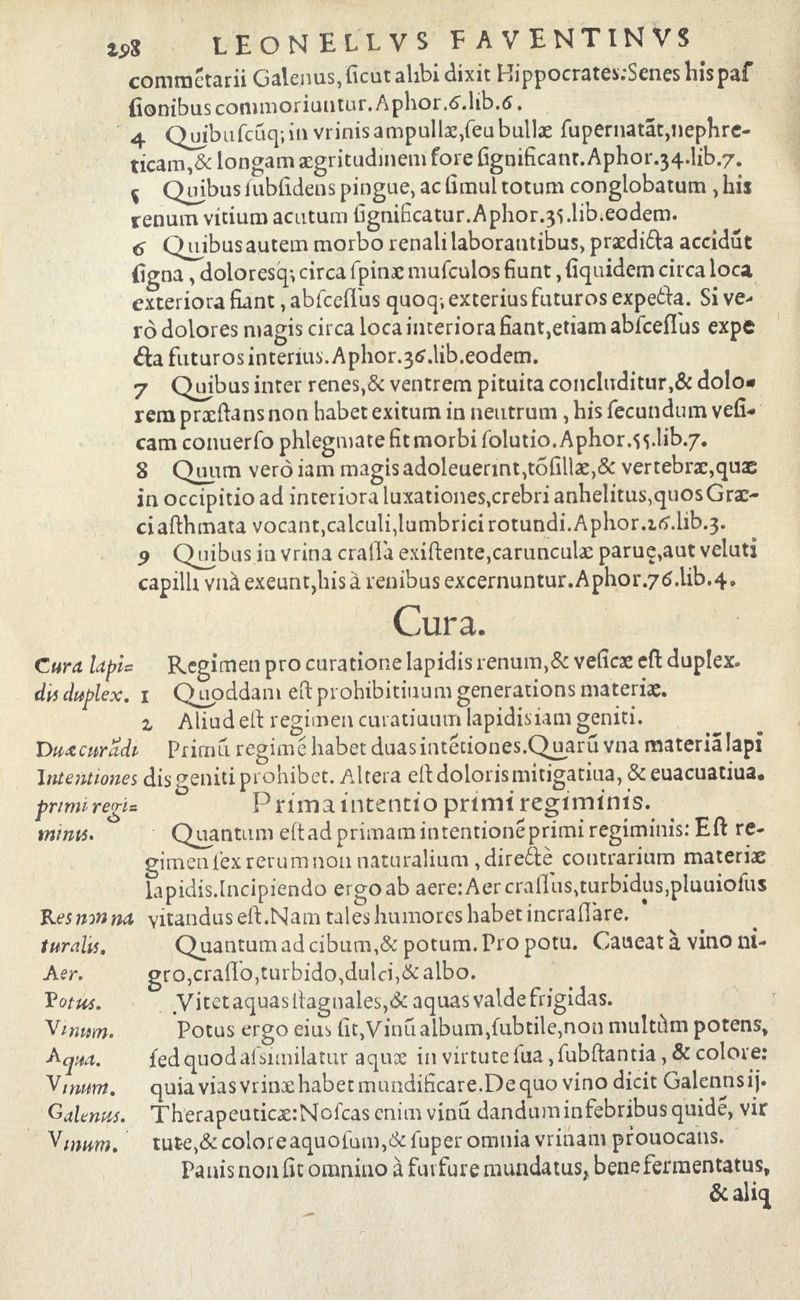 298 LEONELLVS FAVENTINVS
commẽtarii Galenus, ſicut alibi dixit Hippocrates: Senes his paſ
ſionibus commoriuntur. Aphor. 6. lib. 6.
4 Quibuſcũq; in vrinis ampullæ, ſeu bullæ ſupernatãt, nephre-
ticam, & longam ægritudinem fore ſignificant. Aphor. 34. lib. 7.
5 Quibus ſubſidens pingue, ac ſimul totum conglobatum, his
renum vitium acutum ſignificatur. Aphor. 35. lib. eodem.
6 Quibus autem morbo renali laborantibus, prædicta accidũt
ſigna, doloresq; circa ſpinæ muſculos fiunt, ſiquidem circa loca
exteriora fiant, abſceſſus quoq; exterius futuros expecta. Si ve-
rò dolores magis circa loca interiora fiant, etiam abſceſſus expe
cta futuros interius. Aphor. 36. lib. eodem.
7 Quibus inter renes, & ventrem pituita concluditur, & dolo-
rem præſtans non habet exitum in neutrum, his ſecundum veſi-
cam conuerſo phlegmate fit morbi ſolutio. Aphor. 55. lib. 7.
8 Quum verò iam magis adoleuerint, tõſillæ, & vertebræ, quæ
in occipitio ad interiora luxationes, crebri anhelitus, quos Græ-
ci aſthmata vocant, calculi, lumbrici rotundi. Aphor. 26. lib. 3.
9 Quibus in vrina craſſa exiſtente, carunculæ paruę, aut veluti
capilli vnà exeunt, his à renibus excernuntur. Aphor. 76. lib. 4.
Cura.
Cura lapi= Regimen pro curatione lapidis renum, & veſicæ eſt duplex.
dis duplex. 1 Quoddam eſt prohibitiuum generations materiæ.
2 Aliud eſt regimen curatiuum lapidis iam geniti.
Duæ curãdi Primũ regimẽ habet duas intẽtiones. Quarũ vna materiã lapi
Intentiones dis geniti prohibet. Altera eſt doloris mitigatiua, & euacuatiua.
primi regi= Prima intentio primi regiminis.
minis. Quantum eſt ad primam intentionẽ primi regiminis: Eſt re-
gimen ſex rerum non naturalium, directè contrarium materiæ
lapidis. Incipiendo ergo ab aere: Aer craſſus, turbidus, pluuioſus
Res non na vitandus eſt. Nam tales humores habet incraſſare.
turalis. Quantum ad cibum, & potum. Pro potu. Caueat à vino ni-
Aer. gro, craſſo, turbido, dulci, & albo.
Potus. Vitet aquas ſtagnales, & aquas valde frigidas.
Vinum. Potus ergo eius ſit, Vinũ album, ſubtile, non multùm potens,
Aqua. ſed quod aſsimilatur aquæ in virtute ſua, ſubſtantia, & colore:
Vinum. quia vias vrinæ habet mundificare. De quo vino dicit Galenus ij.
Galenus. Therapeuticæ: Noſcas enim vinũ dandum in febribus quidẽ, vir
Vinum. tute, & colore aquoſum, & ſuper omnia vrinam prouocans.
Panis non ſit omnino à furfure mundatus, bene fermentatus,
& aliq